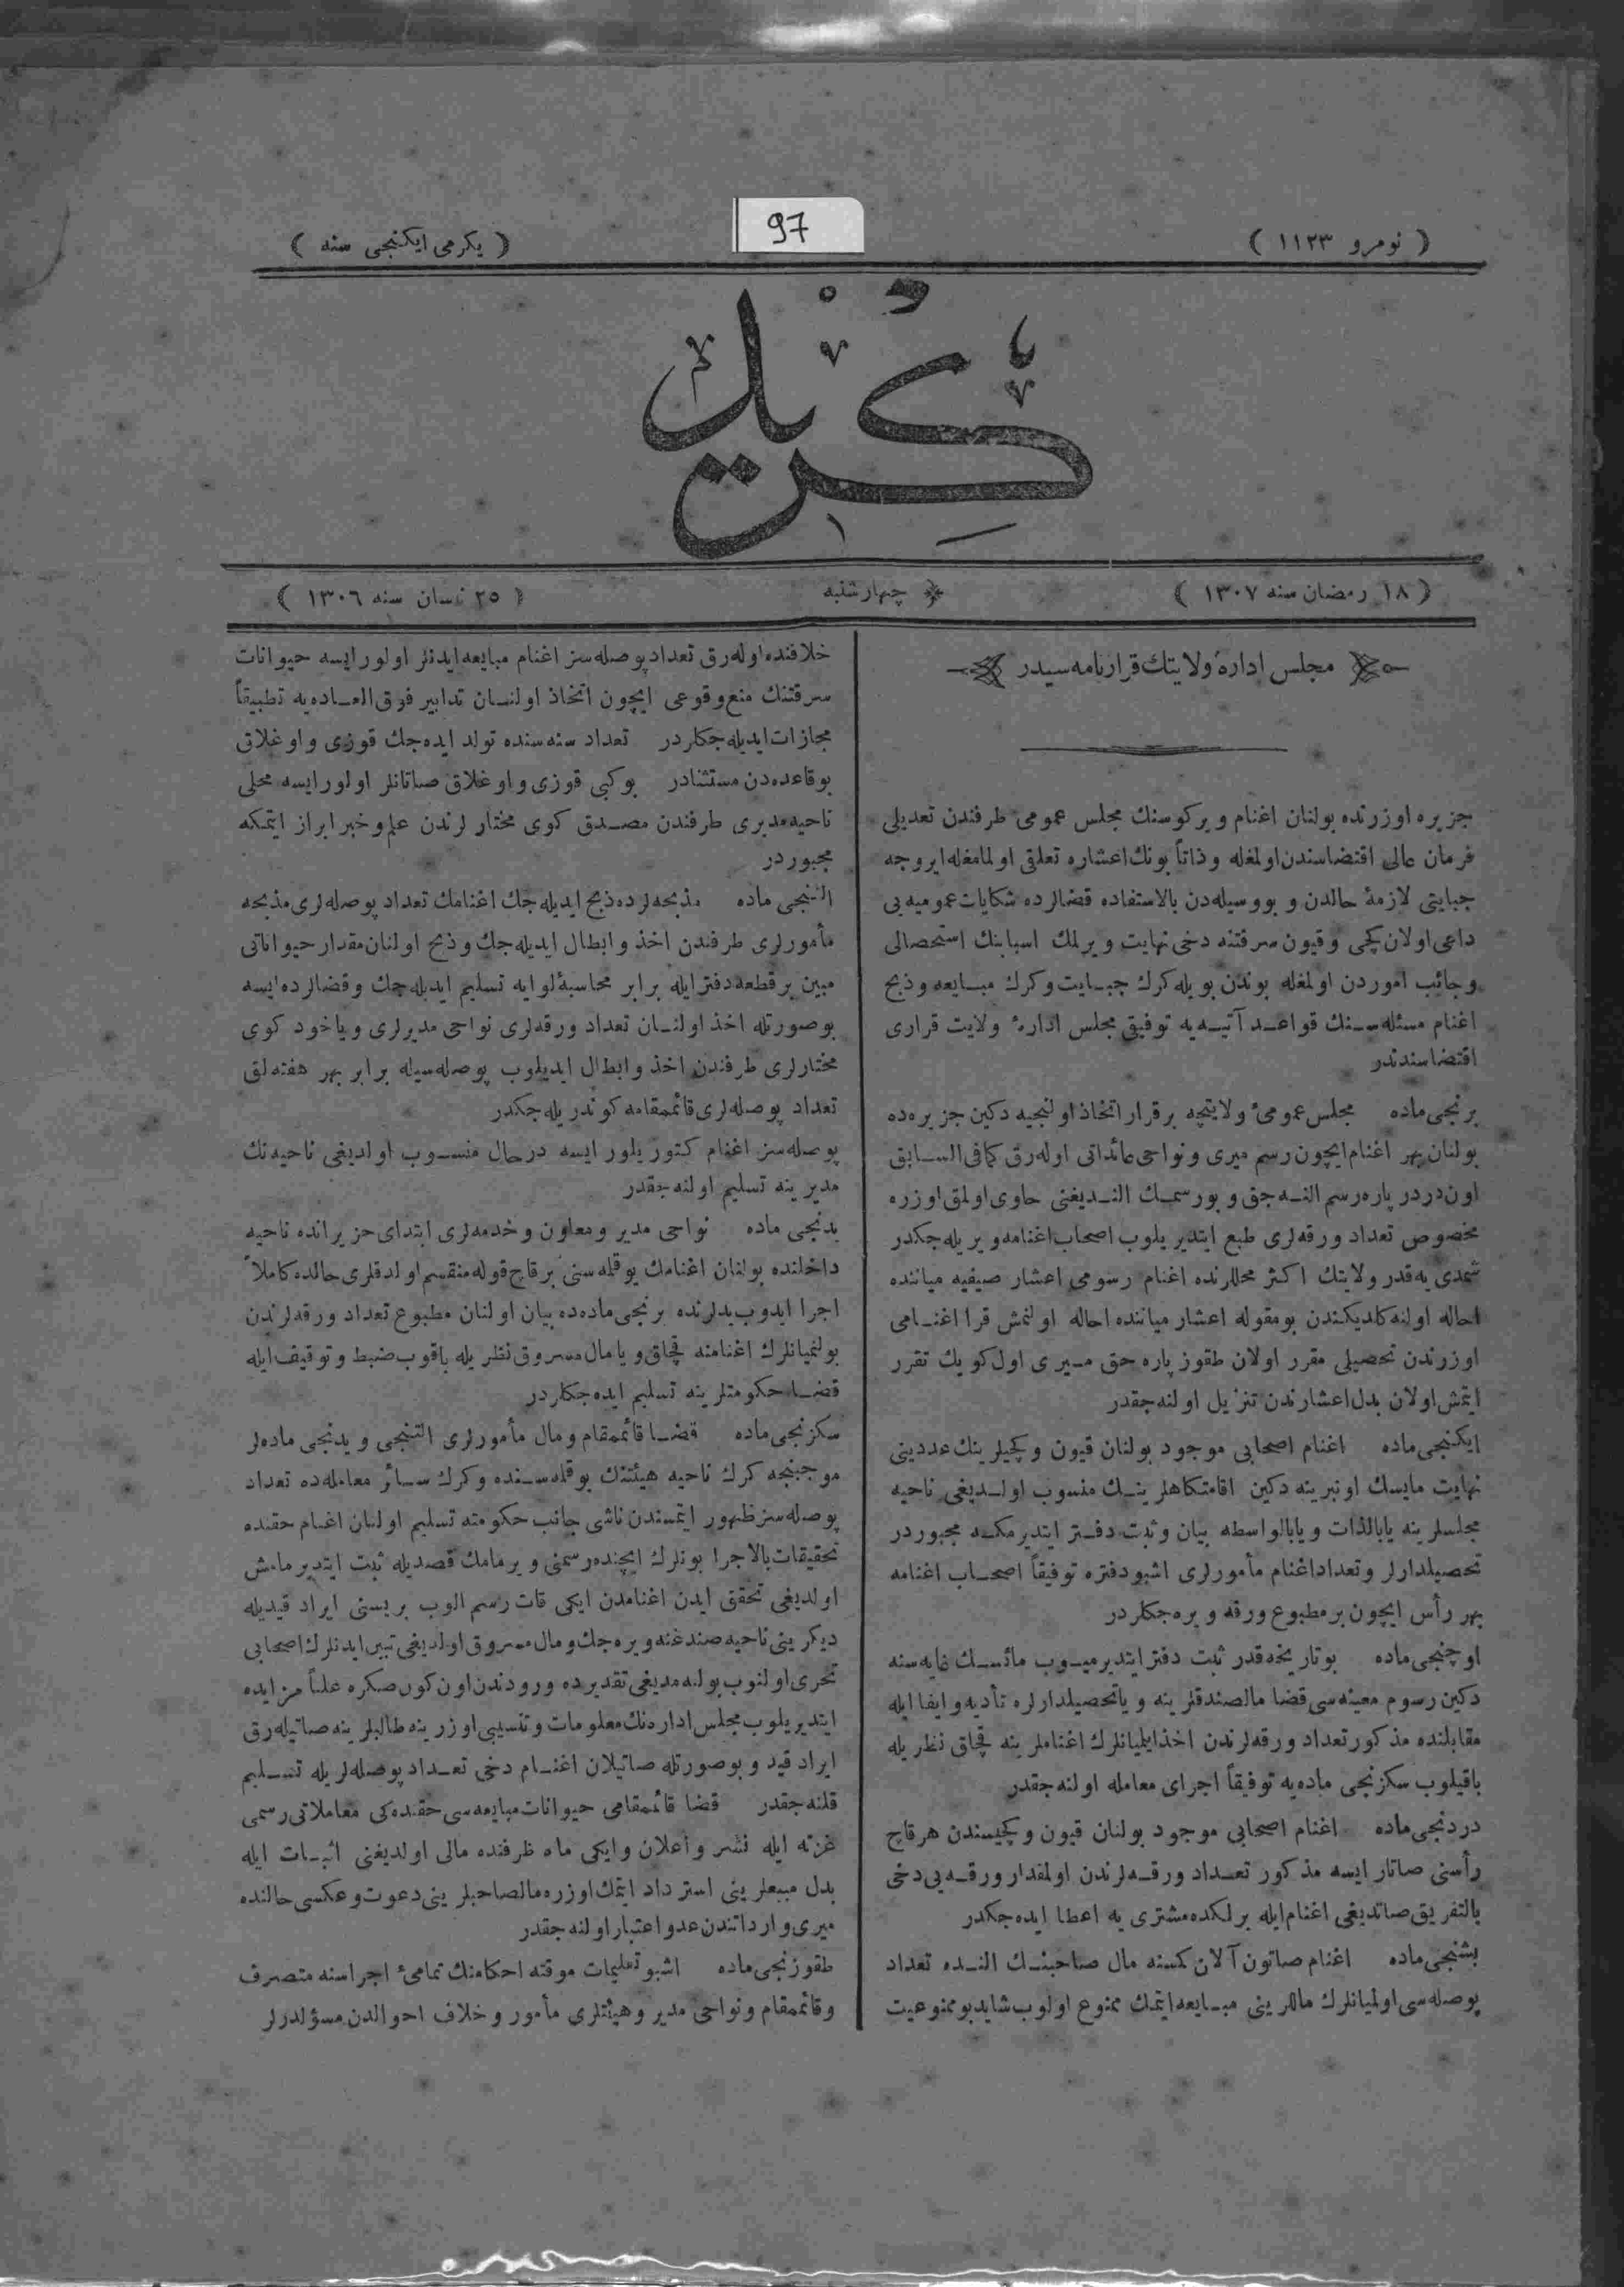 ( نومرو ١١٢٣ )
97
( يكرمى ايكنجى سنه )
كريد
( ١٨ رمضان سنه ١٣٠٧ )
چهارشنبه
( ٢٥ نيسان سنه ١٣٠٦ )
مجلس ادارۀ ولايتك قرارنامه سيدر
جزيره اوزرنده بولنان اغنام ويركوسنك مجلس عمومى طرفندن تعديلى
فرمان عالى اقتضاسندن اولمغله وذاتاً بونك اعشاره تعلقى اولمامغله ايروجه
جبايتى لازمۀ حالدن و بووسيله دن بالاستفاده قضالرده شكايات عموميه يى
داعى اولان كچى وقيون سرقتنه دخى نهايت ويرلمك اسبابنك استحصالى
وجائب اموردن اولمغله بوندن بويله كرك جبايت وكرك مبايعه وذبح
اغنام مسئله سنك قواعد آتيه يه توفيقى مجلس ادارۀ ولايت قرارى
اقتضاسندندر
برنجى ماده مجلس عمومئ ولايتچه برقرار اتخاذ اولنجيه دكين جزيره ده
بولنان بهر اغنام ايچون رسم ميرى ونواحى عائداتى اوله رق كمافى السابق
اون درر پاره رسم النه جق وبورسمك النديغنى حاوى اولمق اوزره
مخصوص تعداد ورقه لرى طبع ايتديريلوب اصحاب اغنامه ويريله جكدر
شمدى يه قدر ولايتك اكثر محللرنده اغنام رسومى اعشار صيفيه ميانده
احاله اولنه كلديكندن بومقوله اعشار ميانده احاله اولنمش قرا اغنامى
اوزرندن تحصيلى مقرر اولان طقوز پاره حق ميرى اول كويك تقرر
ايتمش اولان بدل اعشارندن تنزيل اولنه جقدر
ايكنجى ماده اغنام اصحابى موجود بولنان قيون وكچيلرينك عددينى
نهايت مايسك اونبرينه دكين اقامتكاهلرينك منسوب اولديغى ناحيه
مجلسلرينه يابالذات ويابالواسطه بيان وثبت دفتر ايتديرمكه مجبوردر
تحصيلدارلر وتعداد اغنام مأمورلرى اشبو دفتره توفيقاً اصحاب اغنامه
بهر رأس ايچون برمطبوع ورقه ويره جكلردر
اوچنجى ماده بوتاريخه قدر ثبت دفتر ايتديرميوب مائسك غايه سنه
دكين رسوم معينه سى قضا مالصندقلرينه وياتحصيلدارلره تأديه وايفا ايله
مقابلنده مذكور تعداد ورقه لرندن اخذ ايليانلرك اغناملرينه قچاق نظريله
باقيلوب سكزنجى ماده يه توفيقاً اجراى معامله اولنه جقدر
دردنجى ماده اغنام اصحابى موجود بولنان قيون وكچيسندن هر قاچ
رأسنى صاتار ايسه مذكور تعداد ورقه لرندن اولمقدار ورقه يى دخى
بالتفريق صاتديغى اغنام ايله برلكده مشترى يه اعطا ايده جكدر
بشنجى ماده اغنام صاتون آلان كمسنه مال صاحبنك النده تعداد
پوصله سى اولميانلرك ماللرينى مبايعه ايتمك ممنوع اولوب شايد بوممنوعيت
خلافنده اوله رق تعداد پوصله سز اغنام مبايعه ايدنلر اولور ايسه حيوانات
سرقتنك منع وقوعى ايچون اتخاذ اولنان تدابير فوق العاده يه تطبيقاً
مجازات ايديله جكلردر تعداد سنه سنده تولد ايده جك قوزى واوغلاق
بوقاعده دن مستثنادر بوكبى قوزى واوغلاق صاتانلر اولور ايسه محلى
ناحيه مديرى طرفندن مصدق كوى مختارلرندن علم وخبر ابراز ايتمكه
مجبوردر
التنجى ماده مذبحه لرده ذبح ايديله جك اغنامك تعداد پوصله لرى مذبحه
مأمورلرى طرفندن اخذ وابطال ايديله جك وذبح اولنان مقدار حيواناتى
مبين برقطعه دفتر ايله برابر محاسبۀ لوايه تسليم ايديله جك وقضالرده ايسه
بوصورتله اخذ اولنان تعداد ورقه لرى نواحى مديرلرى وياخود كوى
مختارلرى طرفندن اخذ وابطال ايديلوب پوصله سيله برابر بهر هفته لق
تعداد پوصله لرى قائممقامه كوندريله جكدر
پوصله سز اغنام كتوريلور ايسه درحال منسوب اولديغى ناحيه نك
مديرينه تسليم اولنه جقدر
يدنجى ماده نواحى مدير ومعاون وخدمه لرى ابتداى حزيرانده ناحيه
داخلنده بولنان اغنامك يوقلمه سنى برقاچ قوله منقسم اولدقلرى حالده كاملاً
اجرا ايدوب يدلرنده برنجى ماده ده بيان اولنان مطبوع تعداد ورقه لرندن
بولنميانلرك اغنامنه قچاق ويا مال مسروق نظريله باقوب ضبط وتوقيف ايله
قضا حكومتلرينه تسليم ايده جكلردر
سكزنجى ماده قضا قائممقام ومال مأمورلرى التنجى ويدنجى ماده لر
موجبنجه كرك ناحيه هيئتنك يوقلمه سنده وكرك سائر معامله ده تعداد
پوصله سز ظهور ايتمسندن ناشى جانب حكومته تسليم اولنان اغنام حقنده
تحقيقات بالاجرا بونلرك ايچنده رسمنى ويرمامك قصديله ثبت ايتديرمامش
اولديغى تحقق ايدن اغنامدن ايكى قات رسم الوب بريسنى ايراد قيديله
ديكرينى ناحيه صندغنه ويره جك ومال مسروق اولديغى تبين ايدنلرك اصحابى
تحرى اولنوب بولنه مديغى تقديرده ورودندن اون كون صكره علناً مزايده
ايتديريلوب مجلس اداره نك معلومات وتنسيبى اوزرينه طالبلرينه صاتيله رق
ايراد قيد وبوصورتله صاتيلان اغنام دخى تعداد پوصله لريله تسليم
قلنه جقدر قضا قائممقامى حيوانات مبايعه سى حقنده كى معاملاتى رسمى
غزته ايله نشر واعلان وايكى ماه ظرفنده مالى اولديغنى اثبات ايله
بدل مبيعلرينى استرداد ايتمك اوزره مال صاحبلرينى دعوت وعكسى حالنده
ميرى وارداتندن عد واعتبار اولنه جقدر
طقوزنجى ماده اشبو تعليمات موقته احكامنك تمامئ اجراسنه متصرف
وقائممقام ونواحى مدير وهيئتلرى مأمور وخلاف احوالدن مسؤلدرلر